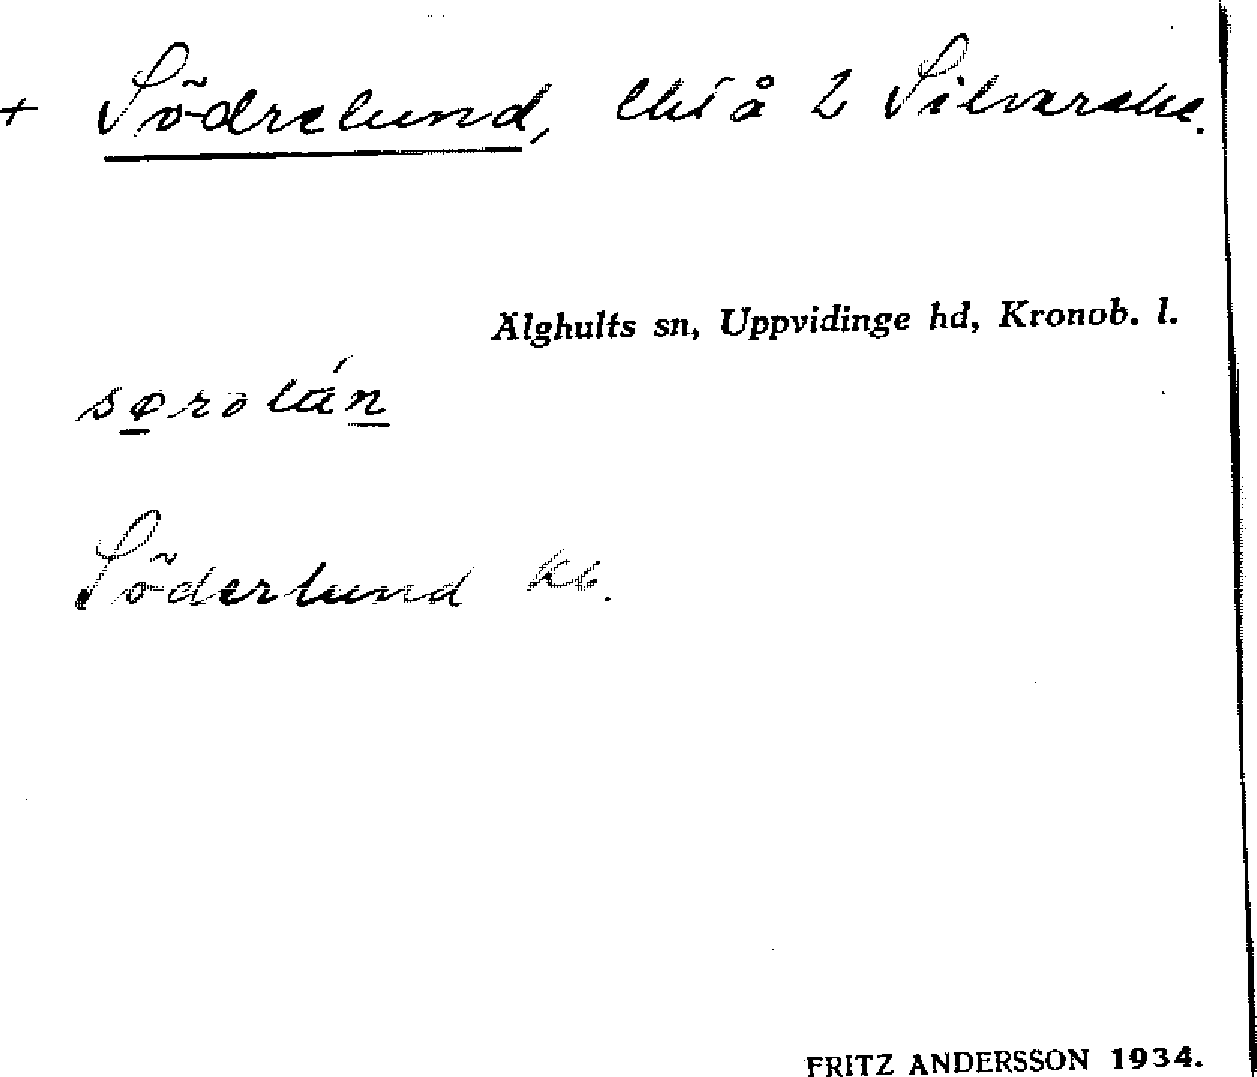 + Södrelund, lht å 2 Silvarahe.
Älghults sn, Uppvidinge hd, Kronob. l.
sørolán
Söderlund kb.
FRITZ ANDERSSON 1934.